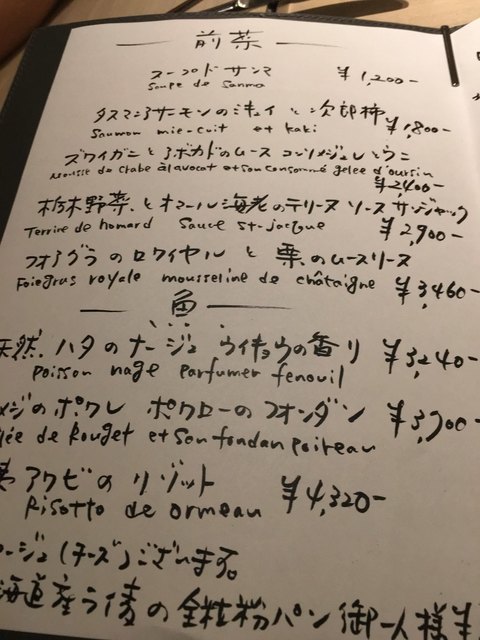 前菜
スープ ド サンマ ¥1,200-
Soupe de Sanma
タスマニアサーモンのミキュイ と 次郎柿 ¥1,800-
Saumon mie-cuit et kaki
ズワイガニとアボカドのムース コンソメジュレとウニ
Mousse de crabe àlavocat et son consommé gelée d'oursin
¥2,400-
栃木野菜 と オマール海老のテリーヌ ソース サンジャック
Terrine de homard Sauce st-jacque ¥2,900-
フォアグラのロワイヤル と 栗のムースリーヌ
Foiegras royale mousseline de châtaigne ¥3,460-
魚
天然 ハタの ナージュ ウイキョウの香り ¥3,240-
Poisson nage parfumer fenouil
メジのポワレ ポワローのフォンダン ¥3,900-
ée de Rouget et son fondan poireau
アワビの リゾット ¥4,320-
Risotto de ormeau
ージュ(チーズ)ございます。
海道産ライ麦の全粒粉パン 御一人様 ¥